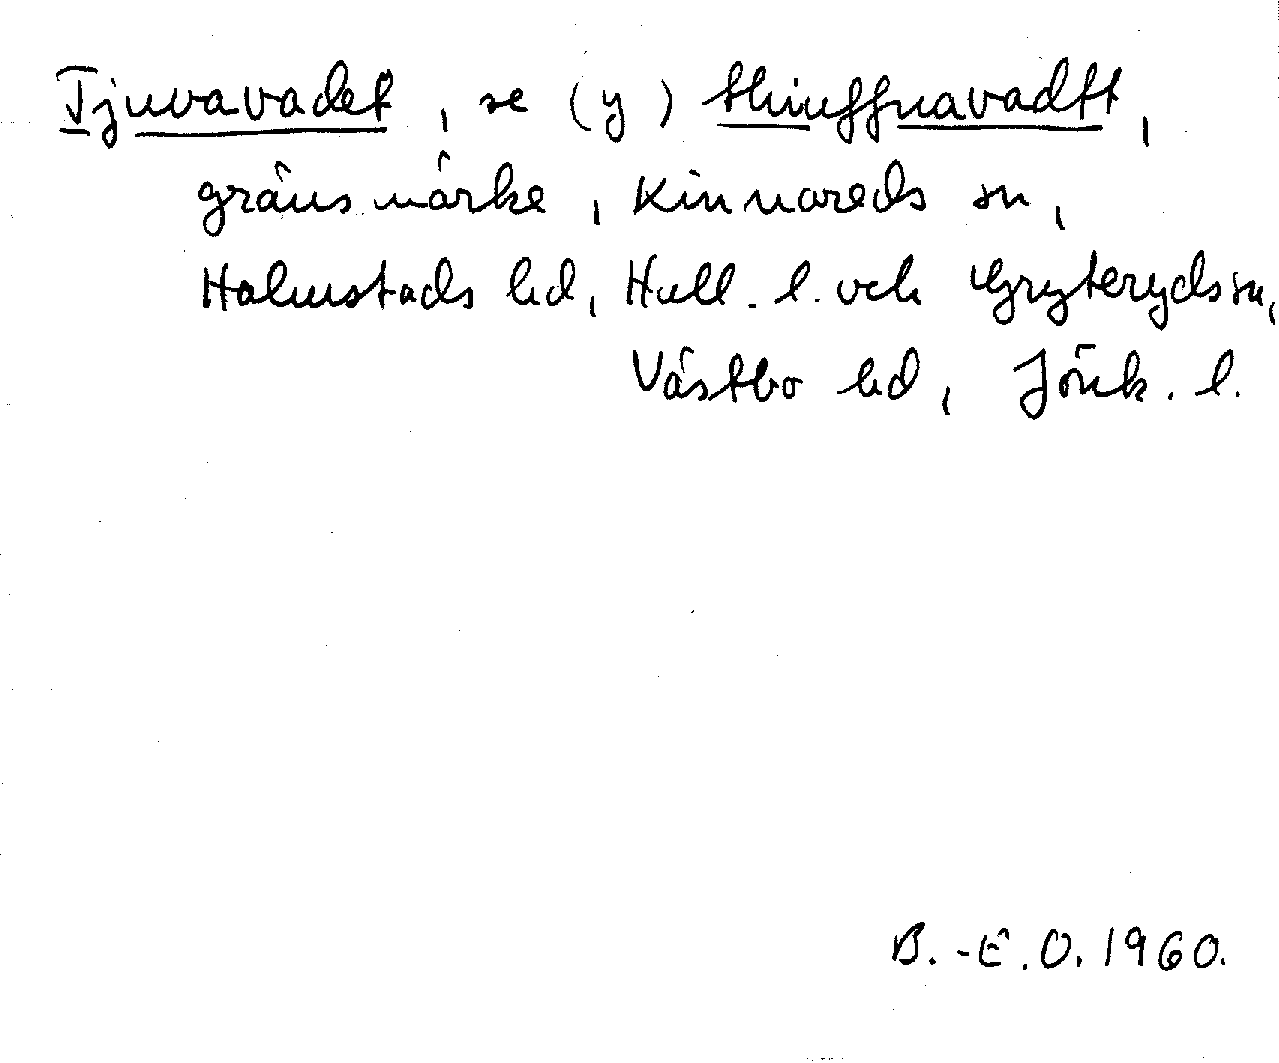 Tjuvavadet, se (y) thiuffuavadtt,
gränsmärke, Kinnareds sn,
Halmstads hd, Hall. l. och Gryteryds sn,
Västbo hd, Jönk. l.
B.-E.O. 1960.